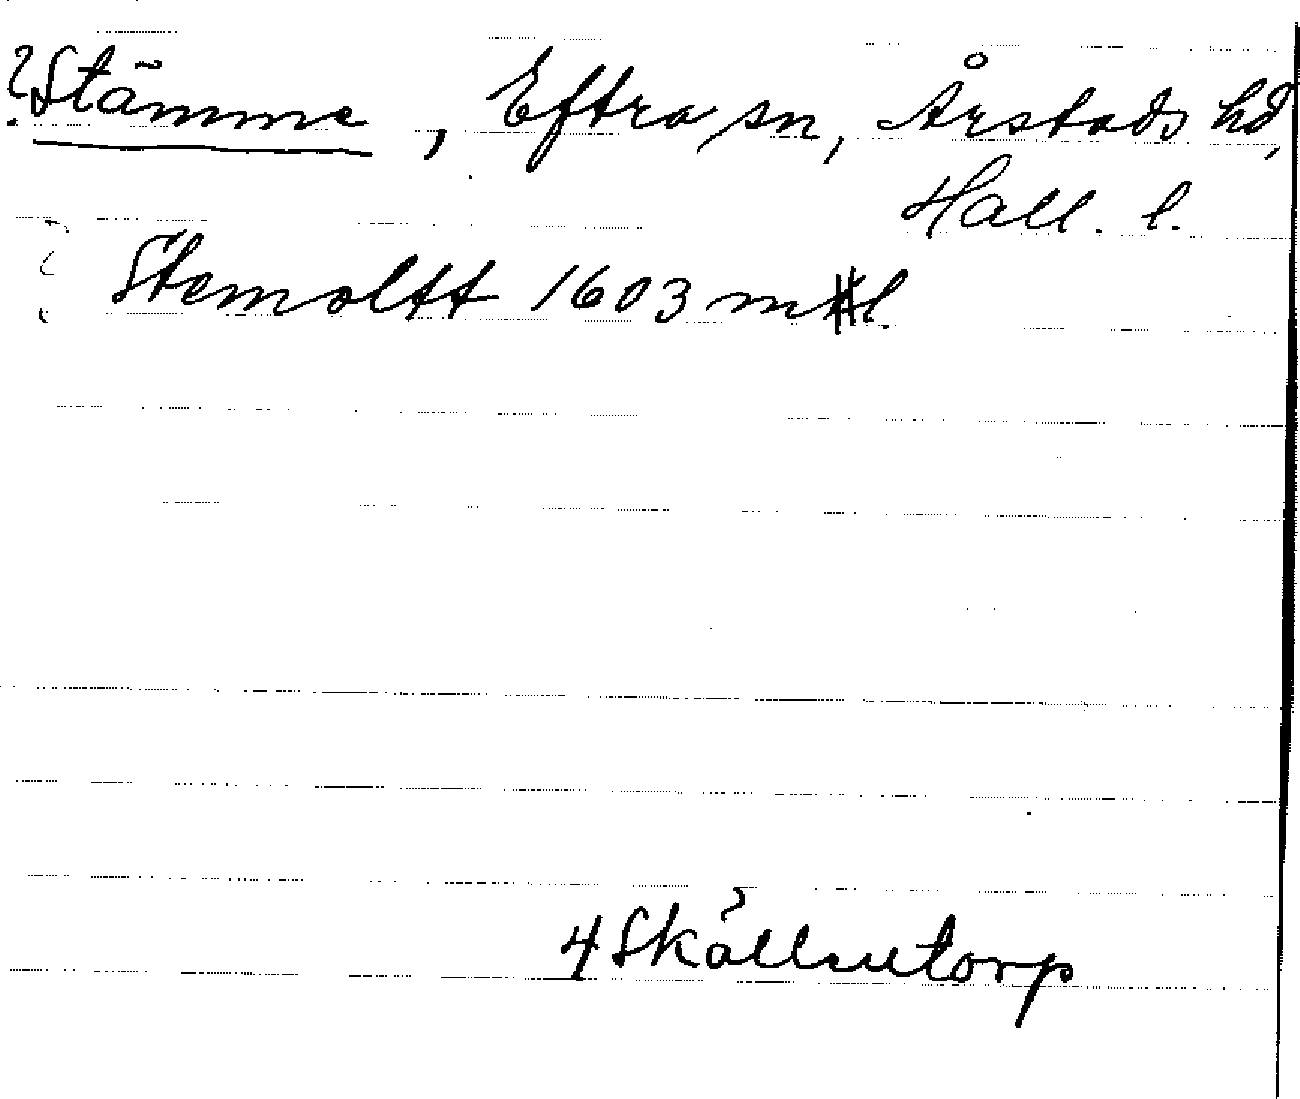 ? Stämma, Eftra sn, Årstads hd,
Hall. l.
Stemoltt 1603 ml.
4 Skällentorp